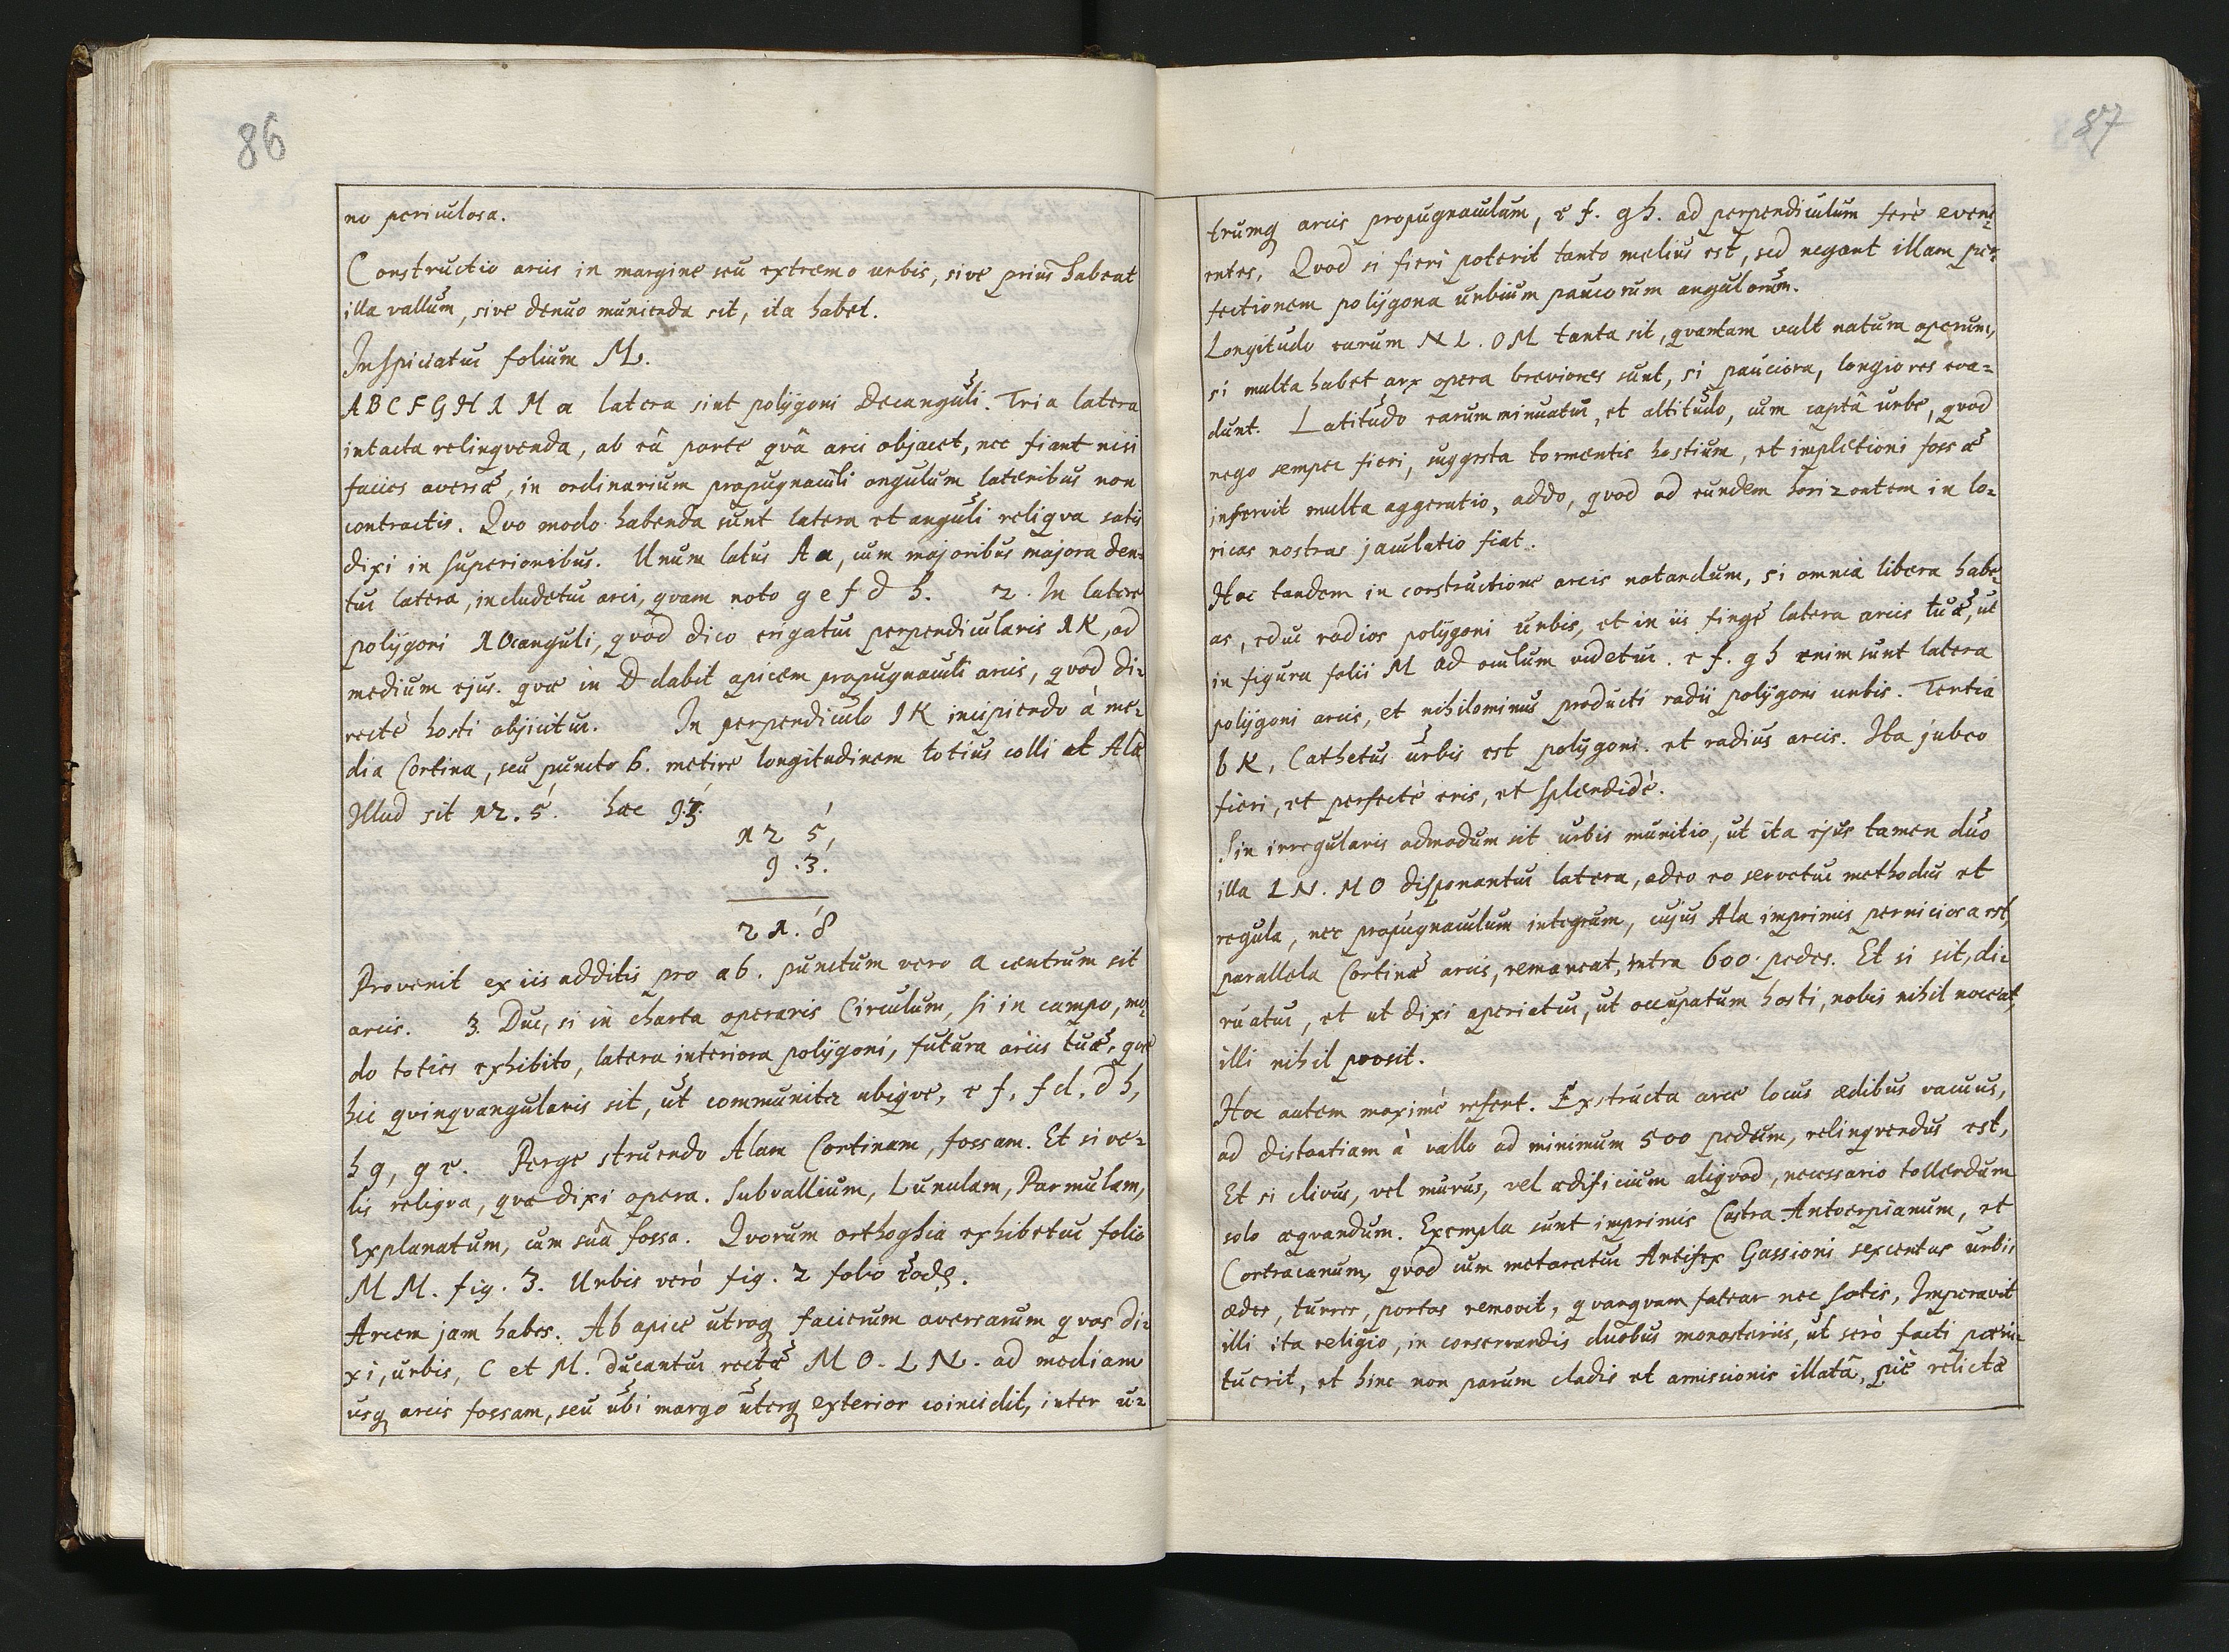 86
no periculosa.
Constructio arcis in margine seu extremo urbis, sive prius habeat
illa vallum, sive denuo munienda sit, ita habet.
Inspiciatur folium M.
A B C F G H I M a latera sint polÿgoni Decanguli. Tria latera
intacta relinqvenda, ab eâ parte qvâ arci objacet, nec fiant nisi
facies aversæ, in ordinarium propugnaculi angulum lateribus non
contractis. Qvo modo habenda sunt latera et anguli reliqva satis
dixi in superioribus. Unum latus A a, cum majoribus majora den¬
tur latera, includetur arci, qvam noto g e f d h. 2. In latere
polÿgoni 10canguli, qvod dico erigatur perpendicularis I K, ad
medium ejus. qvæ in D dabit apicem propugnaculi arcis, qvod di¬
recté hosti objicitur. In perpendiculo I K incipiendo á me¬
dia Cortina, seu puncto b. metire longitudinem totius colli et Alæ
Illud sit 12. 5'. hæc 9.3'.
12 5',
9.3'.
21.'8
Provenit ex iis additis pro ab. punctum vero a centrum sit
arcis. 3. Duc, si in charta operaris Circulum, si in campo, mo¬
do toties exhibito, latera interiora polÿgoni, futura arcis tuæ, qvæ
hic qvinqvangularis sit, ut communiter ubiqve, e f, f d, d h,
h g, g e. Perge struendo Alam Cortinam, fossam. Et si ve¬
lis reliqva, qvæ dixi opera. Subvallium, Lunulam, Parmulam,
Explanatum, cum suâ fossa. Qvorum orthoghia exhibetur folio
M M. fig. 3. Urbis veró fig. 2 folio eodē.
Arcem jam habes. Ab apice utroq facierum aversarum qvas di¬
xi, urbis, C et M. Ducantur rectæ M O. L N. ad mediam
usq arcis fossam, seu ubi margo uterq exterior coincidit, inter u¬
87
trumq arcis propugnaculum, e f. g h. ad perpendiculum feré eveni¬
entes, Qvod si fieri poterit tanto melius est, sed negant illam per¬
fectionem polÿgona urbium paucorum angulorum.
Longitudo earum N L. O M tanta sit, qvantam vult natura operum,
si multa habet arx opera breviores sunt, si pauciora, longiores eva¬
dunt. Latitudo earum minuatur, et altitudo, cum captâ urbe, qvod
nego semper fieri, suggesta tormentis hostium, et impletioni fossæ
inserviit multa aggeratio, addo, qvod ad eundem horizontem in lo¬
ricas nostras jaculatio fiat.
Hoc tandem in constructione arcis notandum, si omnia libera habe¬
as, educ radios polÿgoni urbis, et in iis finge latera arcis tuæ, ut
in figura folii M ad oculum videtur. e f. g h enim sunt latera
polÿgoni arcis, et nihilominus producti radii polÿgoni urbis. Tertia
b K, Cathetus urbis est polÿgoni. et radius arcis. Ita jubeo
fieri, et perfecté eris, et splendidé.
Sin irregularis admodum sit urbis munitio, ut ita ejus tamen duo
illa L N. M O disponantur latera, adeo eo servetur methodus et
regula, nec propugnaculum integrum, cujus Ala imprimis perniciosa est,
parallela Cortinæ arcis, remaneat, intra 600 pedes. Et si sit, di¬
ruatur, et ut dixi aperiatur, ut occupatum hosti, nobis nihil noceat,
illi nihil prosit.
Hoc autem maximé refert. Exstructa arce locus ædibus vacuus,
ad distantiam à vallo ad minimum 500 pedum, relinqvendus est,
Et si clivus, vel murus, vel ædificium aliqvod, necessario tollendum
solo æqvandum. Exempla sunt imprimis Castra Antverpianum, et
Cortracanum, qvod cum metaretur Artifex Gassioni sexcentas urbis
ædes, turres, portas removit, qvanqvam fatear nec satis, Imperavit
illi ita religio, in conservandis duobus monasteriis, ut seró facti pœni¬
tuerit, et hinc non parum cladis et amissionis illatâ, pie relictæ